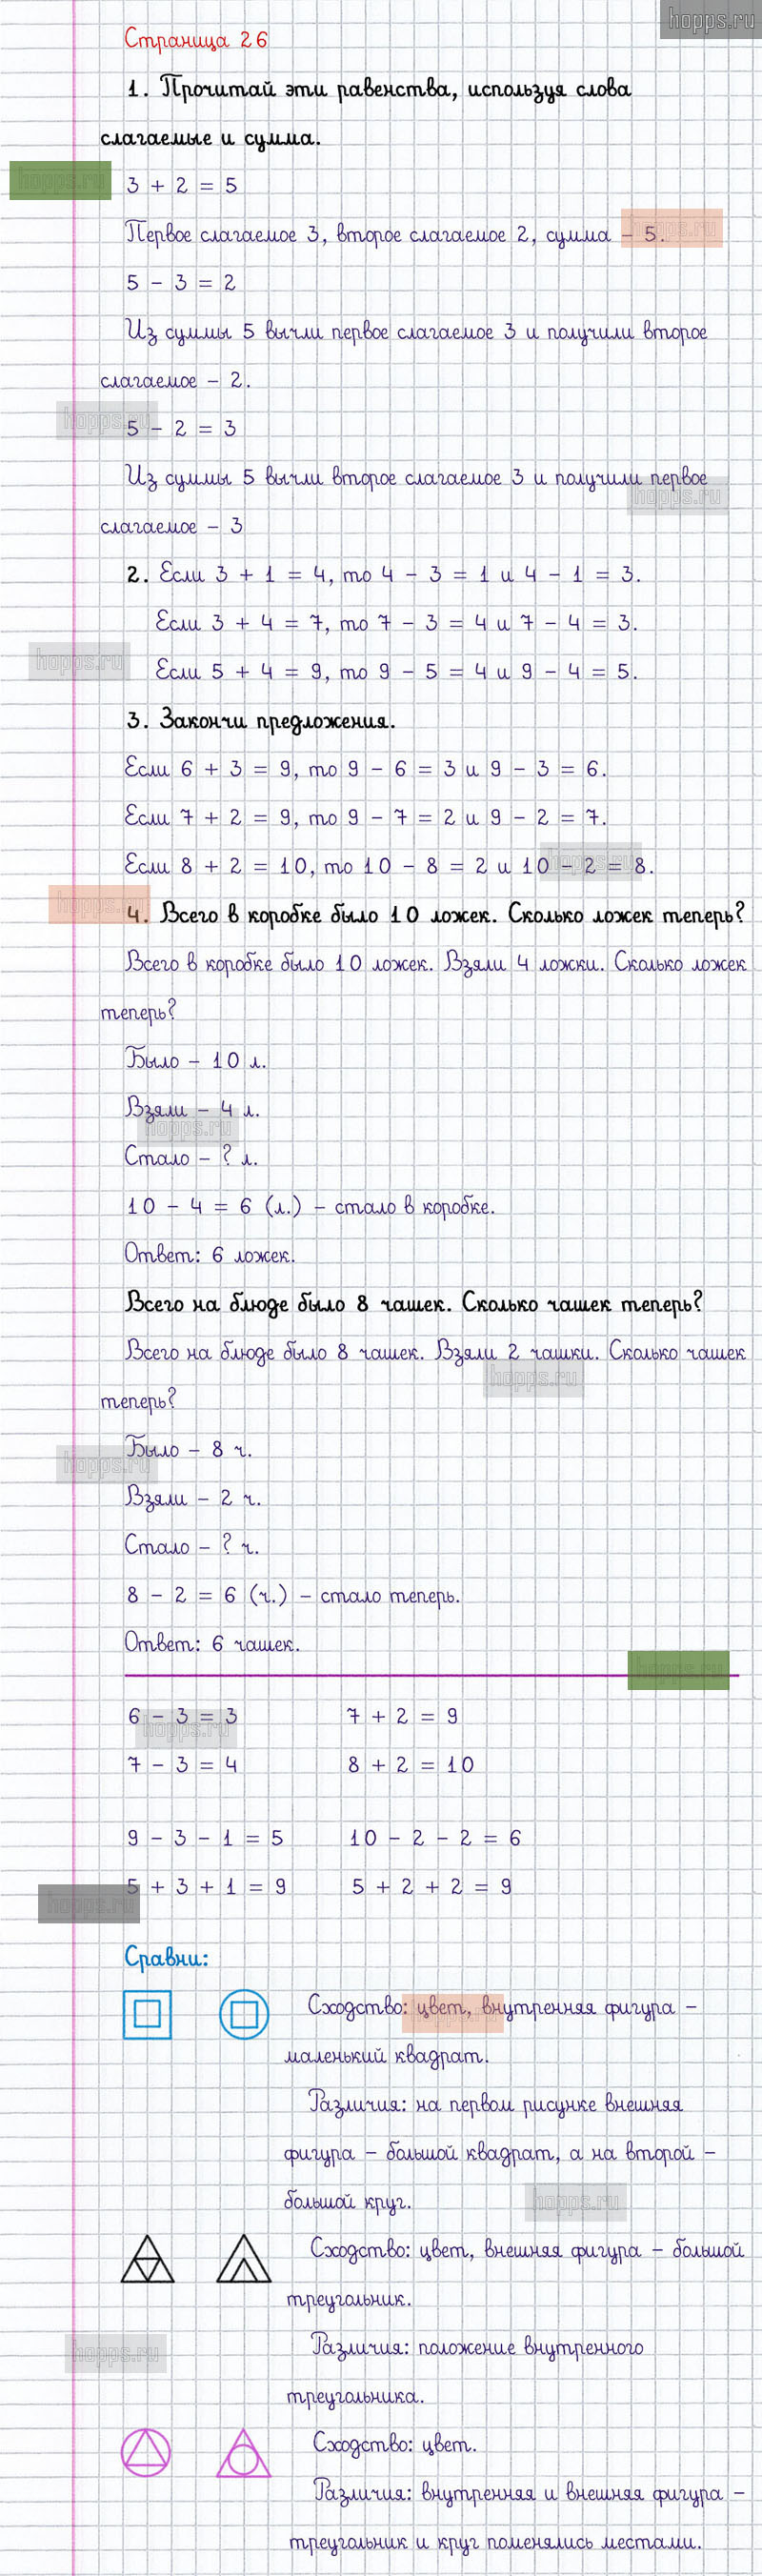 hopps.ru
Страница 26
1. Прочитай эти равенства, используя слова
слагаемые и сумма.
hopps.ru
3 + 2 = 5
Первое слагаемое 3, второе слагаемое 2, сумма – 5.
hopps.ru
5 – 3 = 2
Из суммы 5 вычли первое слагаемое 3 и получили второе
слагаемое – 2.
hopps.ru
5 – 2 = 3
Из суммы 5 вычли второе слагаемое 3 и получили первое
hopps.ru
слагаемое – 3
2. Если 3 + 1 = 4, то 4 – 3 = 1 и 4 – 1 = 3.
Если 3 + 4 = 7, то 7 – 3 = 4 и 7 – 4 = 3.
hopps.ru
Если 5 + 4 = 9, то 9 – 5 = 4 и 9 – 4 = 5.
3. Закончи предложения.
Если 6 + 3 = 9, то 9 – 6 = 3 и 9 – 3 = 6.
Если 7 + 2 = 9, то 9 – 7 = 2 и 9 – 2 = 7.
Если 8 + 2 = 10, то 10 – 8 = 2 и 10 – 2 = 8.
hopps.ru
hopps.ru
4. Всего в коробке было 10 ложек. Сколько ложек теперь?
Всего в коробке было 10 ложек. Взяли 4 ложки. Сколько ложек
теперь?
Было – 10 л.
Взяли – 4 л.
hopps.ru
Стало – ? л.
10 – 4 = 6 (л.) – стало в коробке.
Ответ: 6 ложек.
Всего на блюде было 8 чашек. Сколько чашек теперь?
Всего на блюде было 8 чашек. Взяли 2 чашки. Сколько чашек
hopps.ru
теперь?
Было – 8 ч.
hopps.ru
Взяли – 2 ч.
Стало – ? ч.
8 – 2 = 6 (ч.) – стало теперь.
Ответ: 6 чашек.
hopps.ru
6 – 3 = 3 7 + 2 = 9
hopps.ru
7 – 3 = 4 8 + 2 = 10
9 – 3 – 1 = 5 10 – 2 – 2 = 6
5 + 3 + 1 = 9 5 + 2 + 2 = 9
hopps.ru
Сравни:
Сходство: цвет, внутренняя фигура –
hopps.ru
маленький квадрат.
Различия: на первом рисунке внешняя
фигура – большой квадрат, а на второй –
большой круг.
hopps.ru
Сходство: цвет, внешняя фигура – большой
треугольник.
Различия: положение внутренного
hopps.ru
треугольника.
Сходство: цвет.
Различия: внутренняя и внешняя фигура –
треугольник и круг поменялись местами.